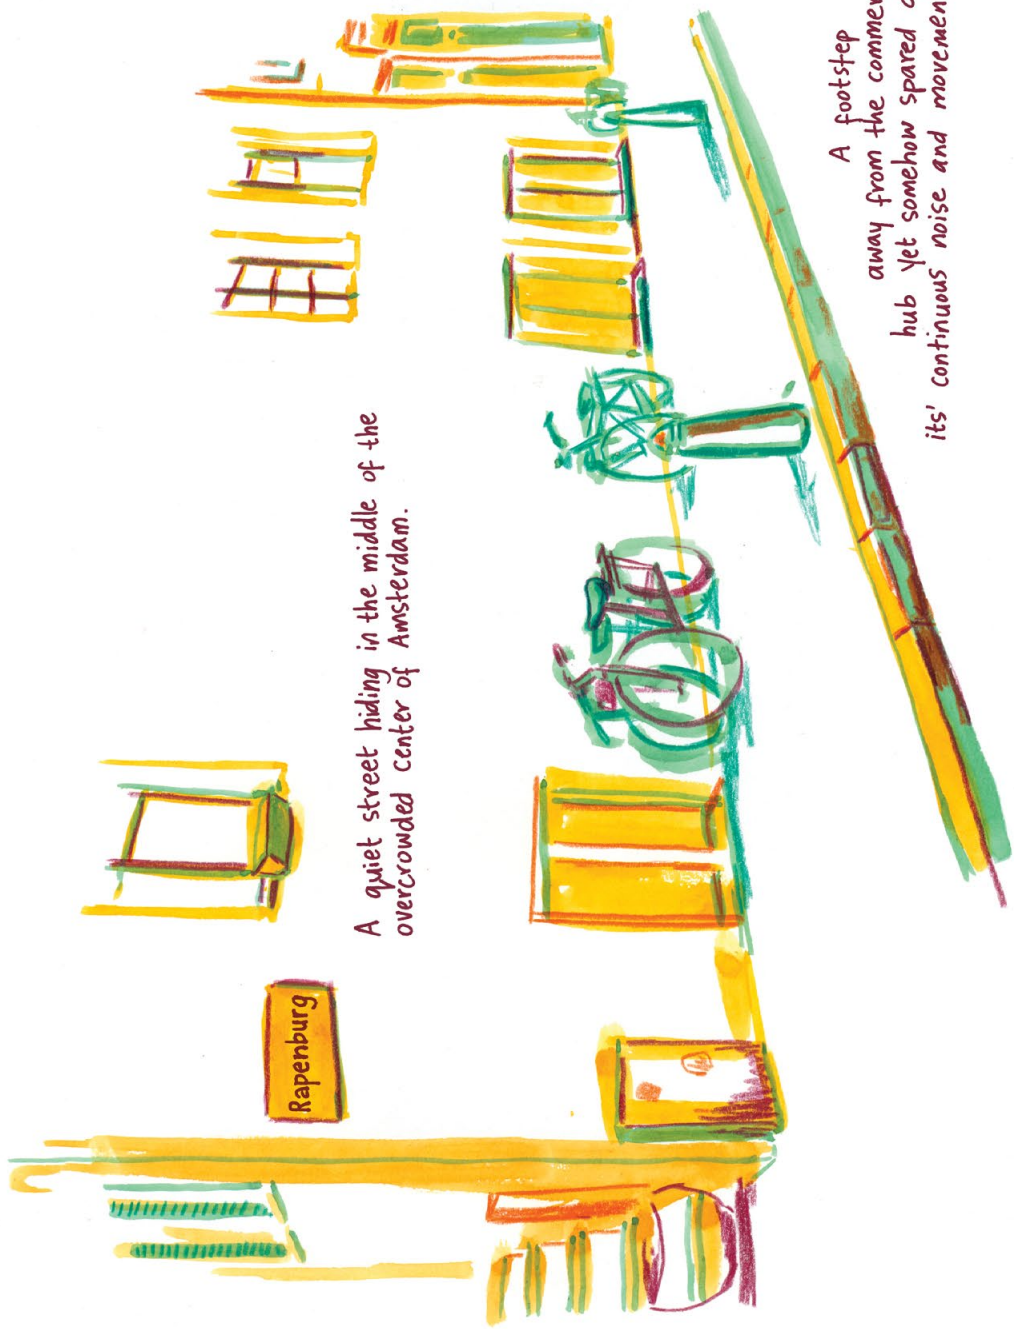 Rapenburg
A quiet street hiding in the middle of the
overcrowded center of Amsterdam.
A footstep
away from the
hub yet somehow spared
its' continuous noise and